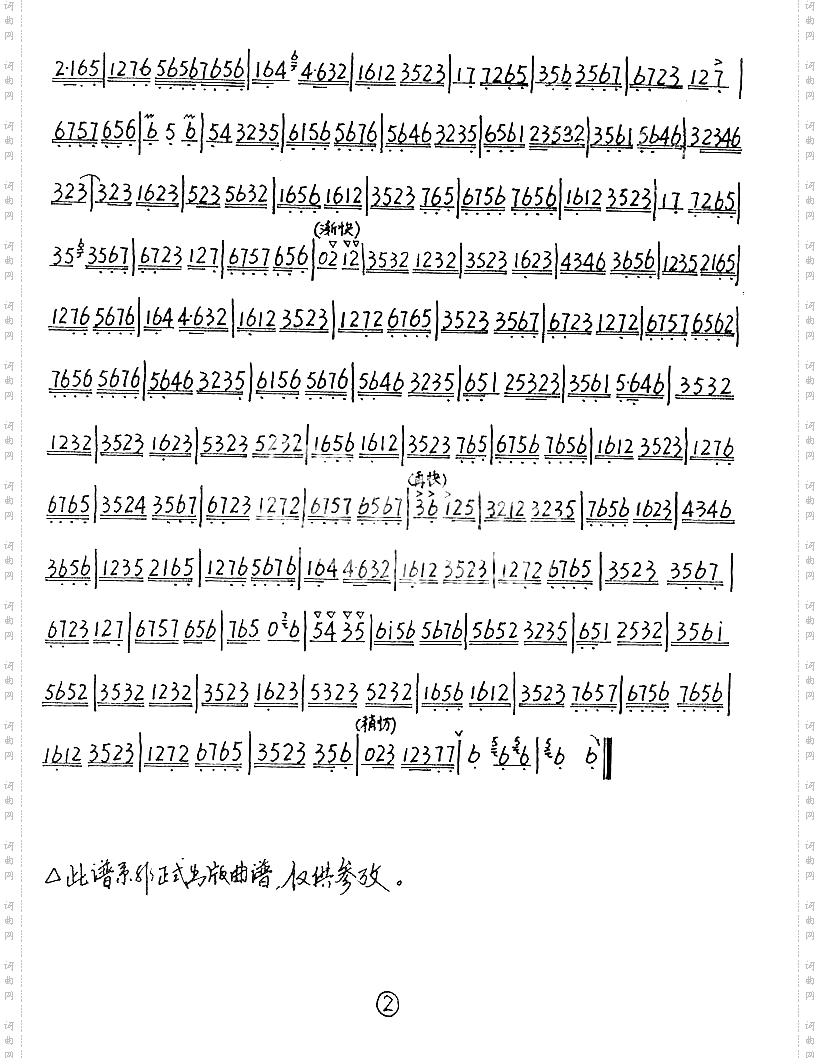 2·165|1276 56567656|164 67 4·632|1612 3523|17 7265|356 3567|6723 127|
6757 656|6 5 6|54 3235|6156 5676|5646 3235|6561 23532|3561 5646|32346
323|323 1623|523 5632|1656 1612|3523 765|6756 7656|1612 3523|17 7265|
(渐快)
35 6 3567|6723 127|6757 656|02 12|3532 1232|3523 1623|4346 3656|12352165|
1276 5676|164 4·632|1612 3523|1272 6765|3523 3567|6723 1272|6757 6562|
7656 5676|5646 3235|6156 5676|5646 3235|651 25323|3561 5·646|3532
1232|3523 1623|5323 5232|1656 1612|3523 765|6756 7656|1612 3523|1276
(再快)
6765|3524 3567|6723 1272|6757 6567|36 125|3212 3235|7656 1623|4346
3656|1235 2165|1276 5676|164 4·632|1612 3523|1272 6765|3523 3567|
6723 127|6757 656|765 0 7 6|54 35|6i56 5676|5652 3235|651 2532|356i
5652|3532 1232|3523 1623|5323 5232|1656 1612|3523 7657|6756 7656|
(稍切)
1612 3523|1272 6765|3523 356|023 12377|6 5 6 5 6|5 6 6‖
△此谱系非正式出版曲谱,仅供参攷。
②
词曲网